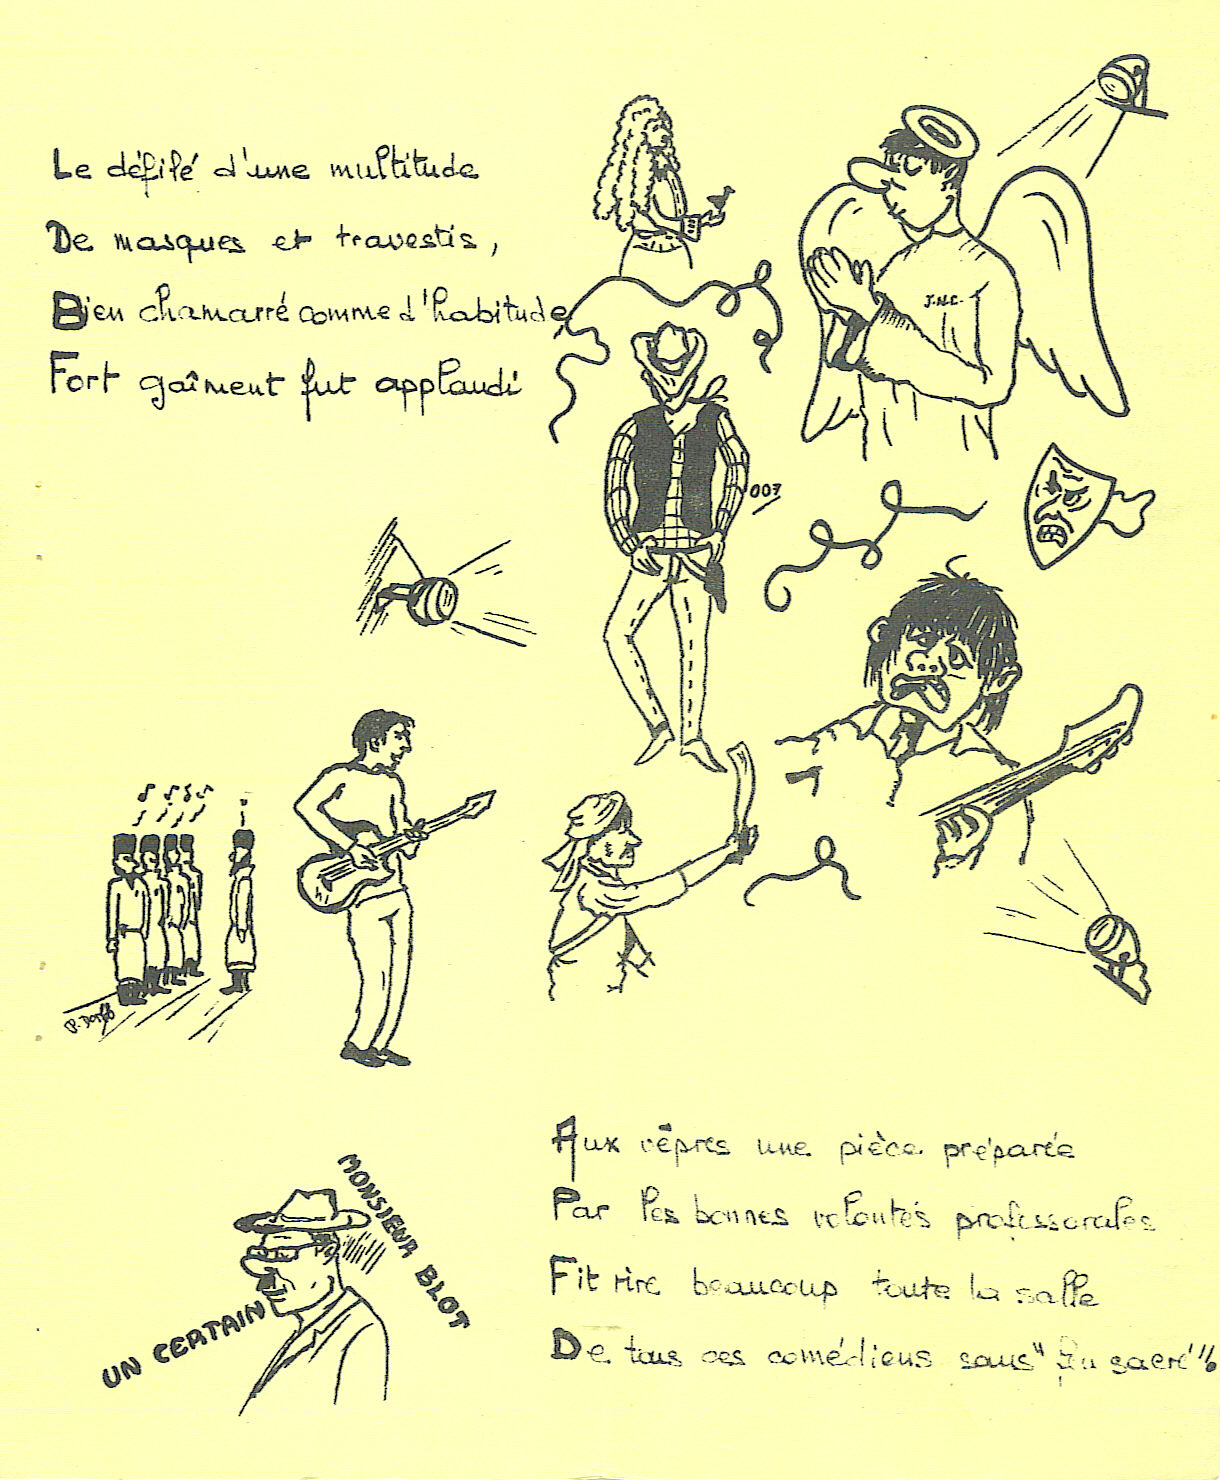 Le défilé d'une multitude
De masques et travestis,
Bien chamarré comme d'habitude
Fort gaîment fut applaudi
J.N.C.
007
P. Dorfb
MONSIEUR BLOT
UN CERTAIN
Aux vêpres une pièce préparée
Par les bonnes volontés professorales
Fit rire beaucoup toute la salle
De tous ces comédiens sans "feu sacré"